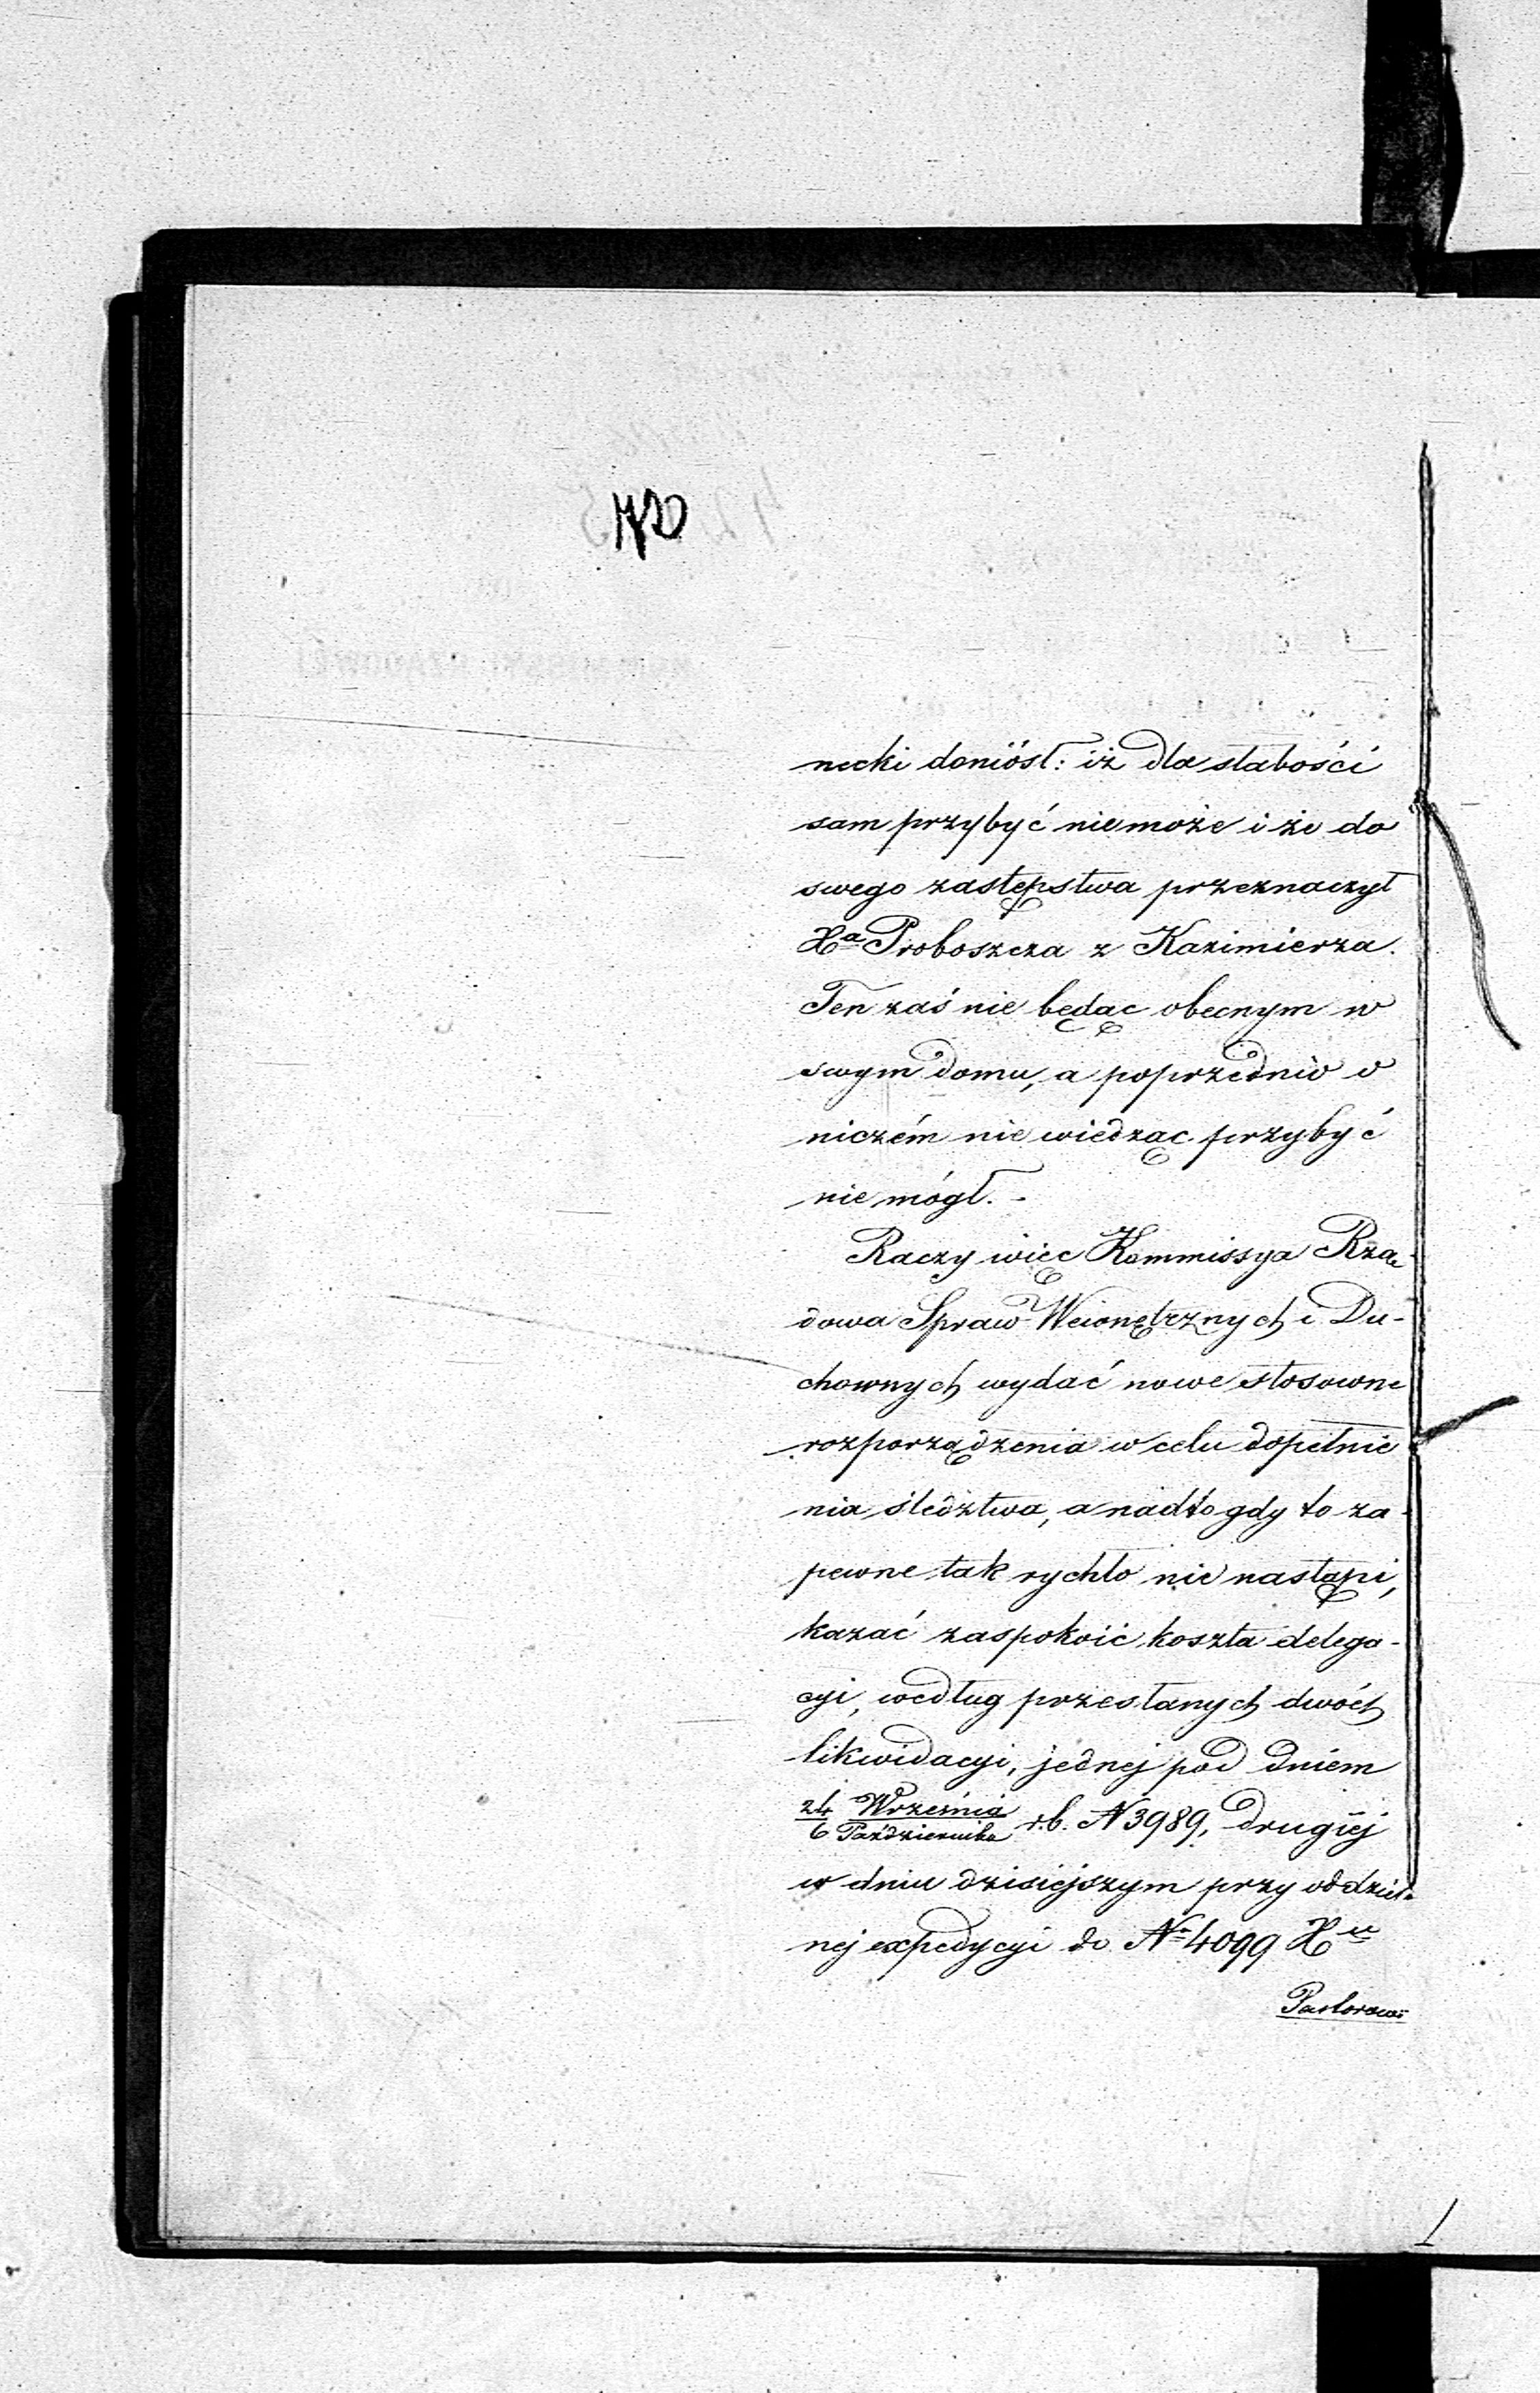 necki doniósł: iż dla słabości
sam przybyć nie może i że do
swego zastępstwa przeznaczył
Xa Proboszcza z Kazimierza.
Ten zaś nie będąc obecnym w
swym domu, a poprzednio o
niczém nie wiedząc przybyć
nie mógł. -
Raczy więc Kommissya Rzą-
dowa Spraw Wewnętrznych i Du-
chownych wydać nowe stosowne
rozporządzenia w celu dopełnie
nia śledztwa, a nadto gdy to za-
pewne tak rychło nie nastąpi,
kazać zaspokoić koszta delega-
cyi, według przesłanych dwóch
likwidacyi, jednej pod dniem
24 Września / 6 Października r.b. N 3989, drugiéj
w dniu dzisiejszym przy oddziel-
nej expedycyi do No 4099 Xu
Pastorowi